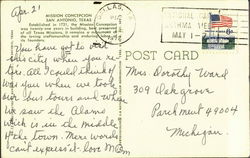 Apr. 21
MISSION CONCEPCION
SAN ANTONIO, TEXAS
Established in 1731, the Mission Concepcion
was twenty one years in building. Best preserved
of all Texas Missions, it remains a monument of
the loving craftsmanship and endurance of
its founders.
You have got to visit
this city when you re
tire. All I could think of
was you when we took
our bus tours and when
we saw the Alamo
which is in the middle
of the town. Mere words
can't express it. Love Mom
POST CARD
Mrs. Dorothy Ward
309 Oakgrove
Parchment 49004
Michigan